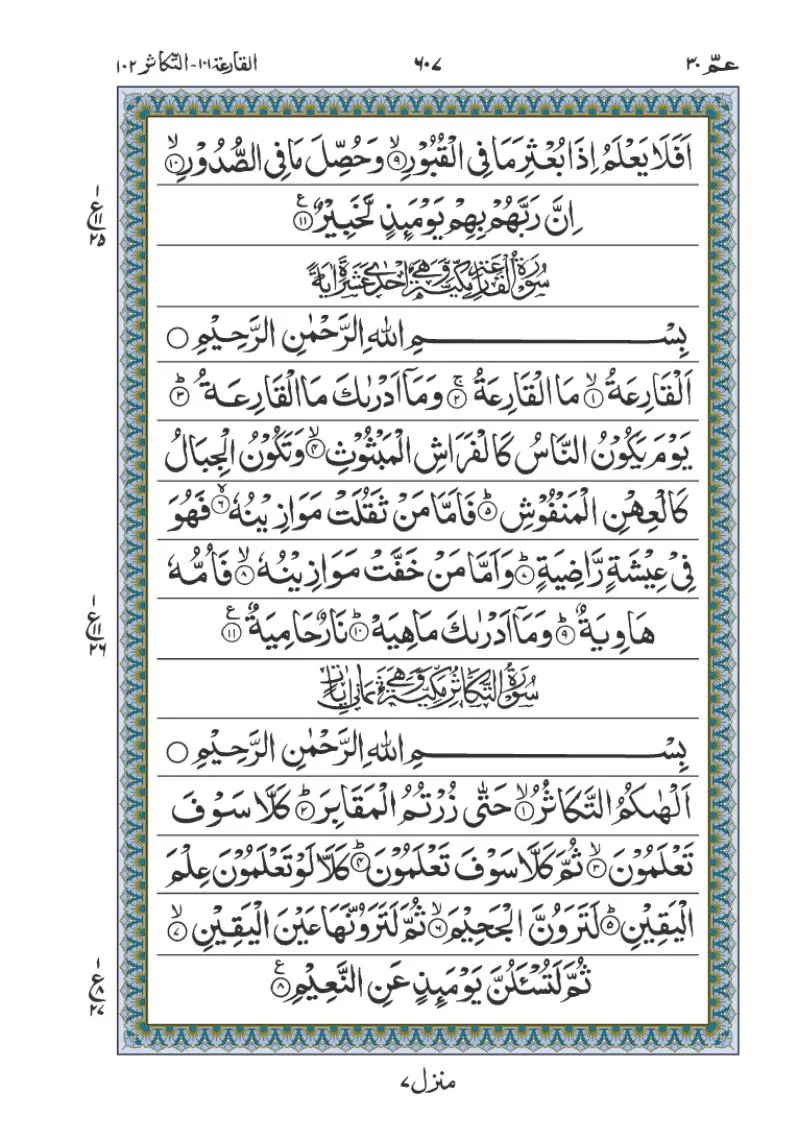 عمّ ۳۰ ۶۰۷ القارعة ۱۰۱ - التّكاثر ۱۰۲
اَفَلَا يَعْلَمُ اِذَا بُعْثِرَ مَا فِي الْقُبُوْرِۙ ۹ وَحُصِّلَ مَا فِي الصُّدُوْرِۙ ۱۰
اِنَّ رَبَّهُمْ بِهِمْ يَوْمَئِذٍ لَّخَبِيْرٌ ࣖ ۱۱
ع ۱ ۱۱ ۲۵
سُوْرَةُ الْقَارِعَةِ مَكِّيَّةٌ وَّهِيَ اِحْدٰى عَشْرَةَ اٰيَةً
بِسْـــــــــمِ اللهِ الرَّحْمٰنِ الرَّحِيْمِ ○
اَلْقَارِعَةُۙ ۱ مَا الْقَارِعَةُۚ ۲ وَمَآ اَدْرٰىكَ مَا الْقَارِعَةُؕ ۳
يَوْمَ يَكُوْنُ النَّاسُ كَالْفَرَاشِ الْمَبْثُوْثِۙ ۴ وَتَكُوْنُ الْجِبَالُ
كَالْعِهْنِ الْمَنْفُوْشِؕ ۵ فَاَمَّا مَنْ ثَقُلَتْ مَوَازِيْنُهٗۙ ۶ فَهُوَ
فِيْ عِيْشَةٍ رَّاضِيَةٍؕ ۷ وَاَمَّا مَنْ خَفَّتْ مَوَازِيْنُهٗۙ ۸ فَاُمُّهٗ
هَاوِيَةٌؕ ۹ وَمَآ اَدْرٰىكَ مَا هِيَهْؕ ۱۰ نَارٌ حَامِيَةٌ ࣖ ۱۱
ع ۱ ۱۱ ۲۶
سُوْرَةُ التَّكَاثُرِ مَكِّيَّةٌ وَّهِيَ ثَمَانِيْ اٰيَاتٍ
بِسْـــــــــمِ اللهِ الرَّحْمٰنِ الرَّحِيْمِ ○
اَلْهٰىكُمُ التَّكَاثُرُۙ ۱ حَتّٰى زُرْتُمُ الْمَقَابِرَؕ ۲ كَلَّا سَوْفَ
تَعْلَمُوْنَۙ ۳ ثُمَّ كَلَّا سَوْفَ تَعْلَمُوْنَؕ ۴ كَلَّا لَوْ تَعْلَمُوْنَ عِلْمَ
الْيَقِيْنِؕ ۵ لَتَرَوُنَّ الْجَحِيْمَۙ ۶ ثُمَّ لَتَرَوُنَّهَا عَيْنَ الْيَقِيْنِۙ ۷
ثُمَّ لَتُسْـَٔلُنَّ يَوْمَئِذٍ عَنِ النَّعِيْمِ ࣖ ۸
ع ۱ ۸ ۲۷
منزل ۷